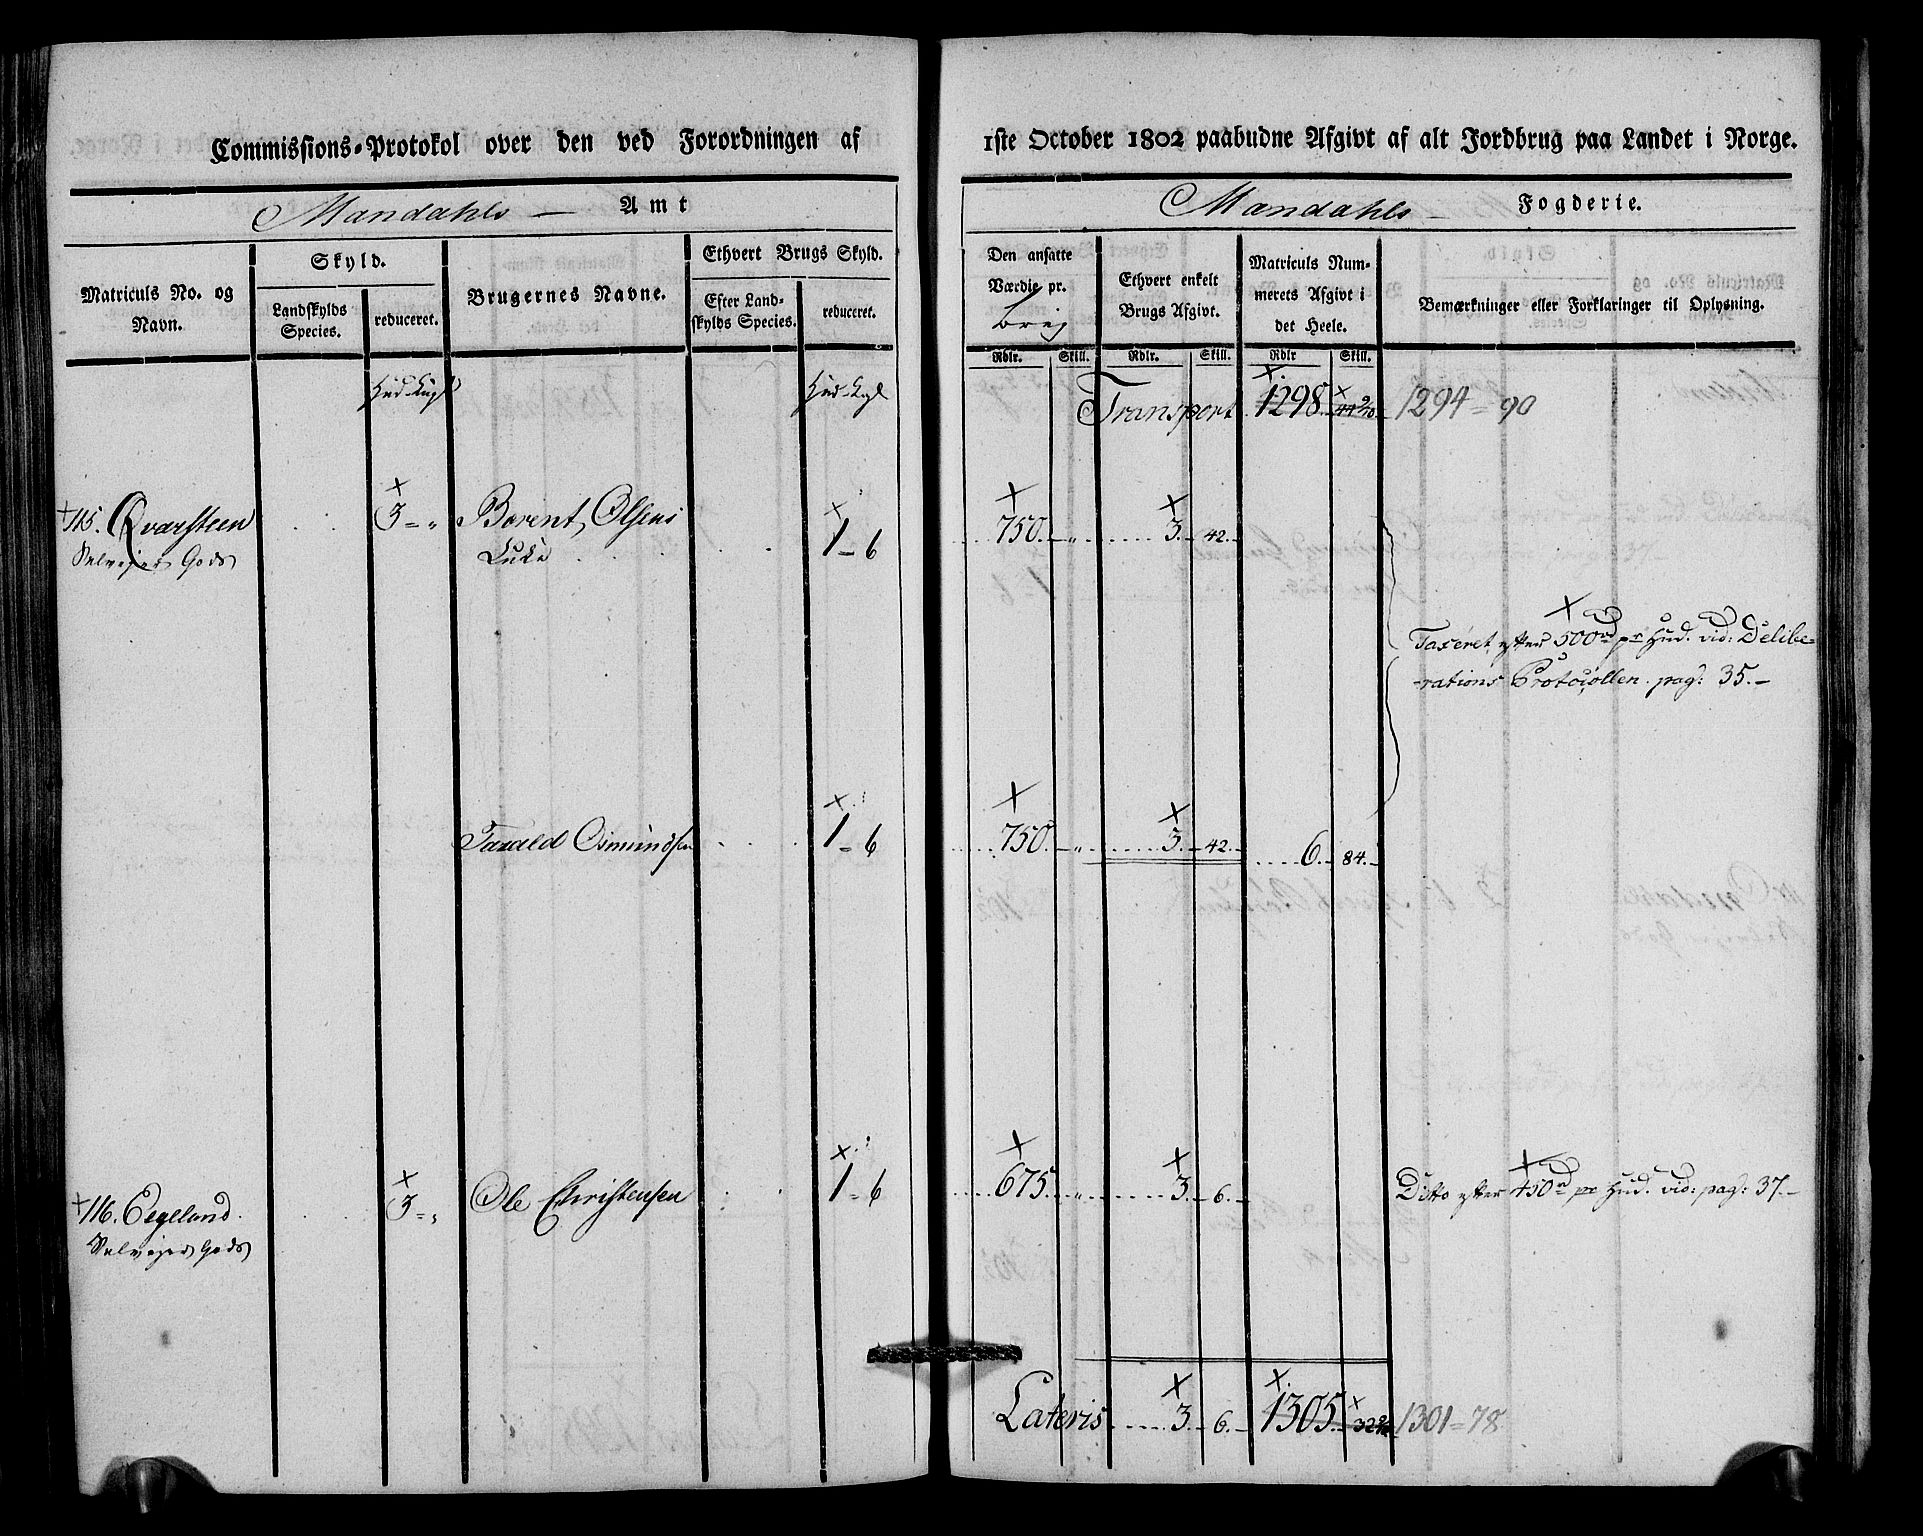 Commissions-Protokol over den ved Forordningen af
Mandahls — Amt
Matriculs No. og Navn.
Skyld.
Landskylds Species.
reduceret.
Brugernes Navne.
Ethvert Brugs Skyld.
Efter Landskylds Species.
reduceret.
115. Qvarsteen 3 = „ Berent Olsens 1 - 6
Selveyer Gods
Tarald Osmundsen 1 = 6
116. Eegeland 3 = „ Ole Christensen 1 - 6
Selveyer Gods
1ste October 1802 paabudne Afgivt af alt Jordbrug paa Landet i Norge.
Mandahls — Fogderie.
Den ansatte Værdie pr.
Ethvert enkelt Brugs Afgivt.
Matriculs Nummerets Afgivt i det Heele.
Bemærkninger eller Forklaringer til Oplysning.
Rdlr. Skill. Rdlr. Skill. Rdlr Skill.
Transport 1298. 1294 = 90
750. „ 3. 42.
Taxeret efter 500rd pr Hud. vid: Delibe-
-rations Protocollen. pag: 35.-
750. „ 3. 42. 6. 84.
675. „ 3. 6. Ditto efter 450rd pr Hud. vid: pag: 37.-
Lateris 3. 6. 1305. 1301 = 78